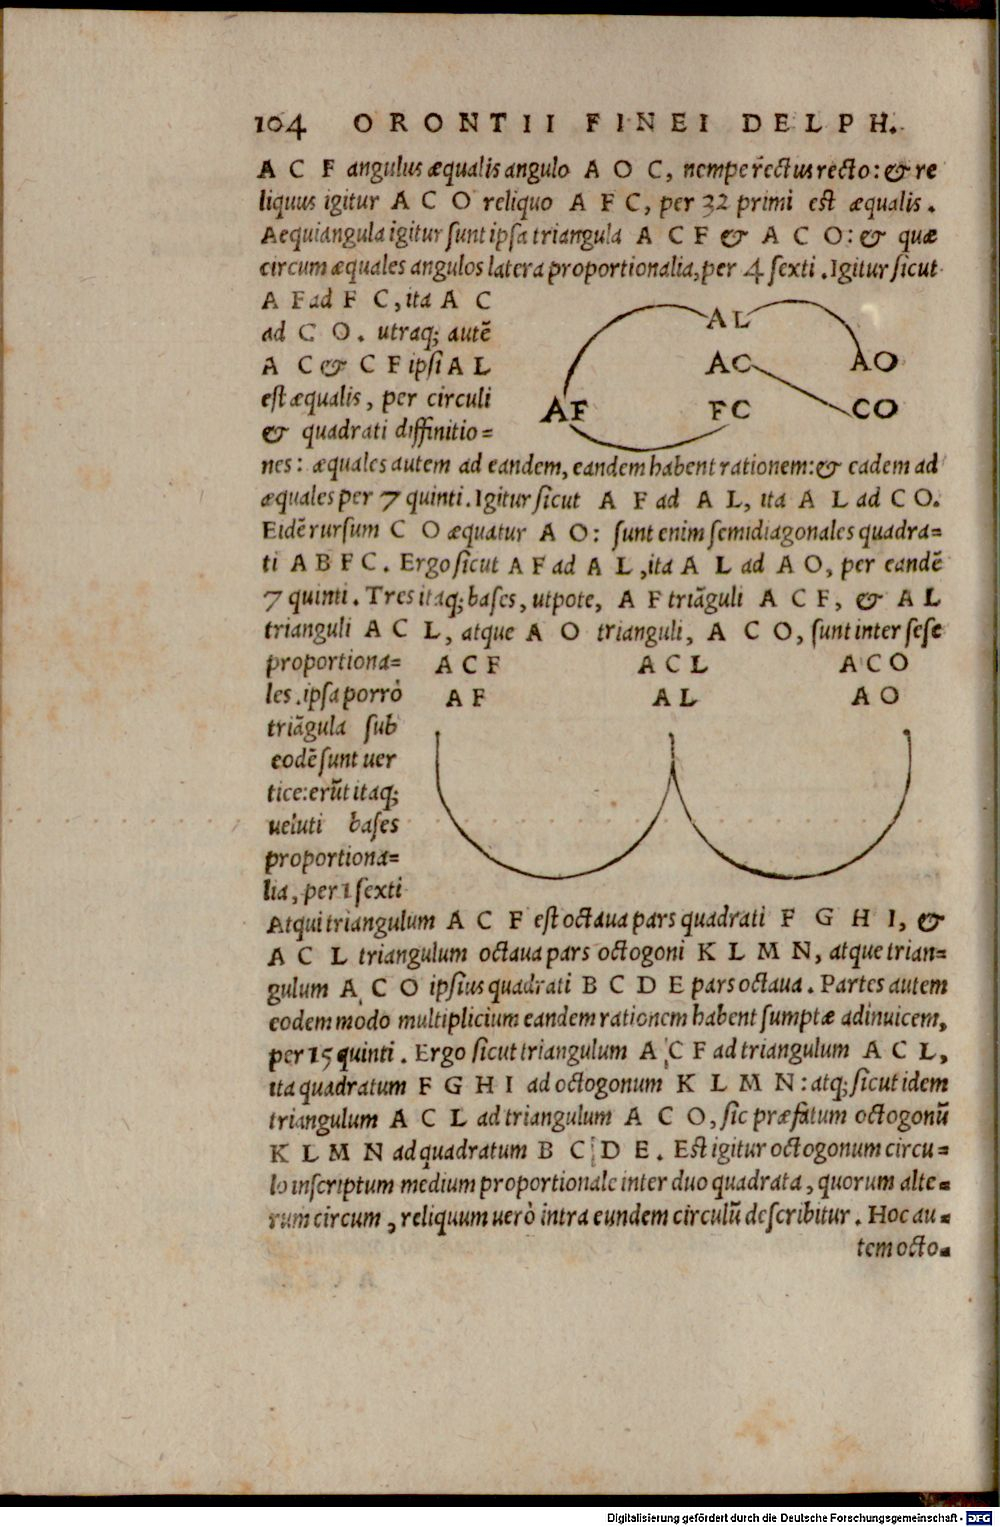 104 ORONTII FINEI DELPH.
A C F angulus æqualis angulo A O C, nempe rectus recto: & re
liquus igitur A C O reliquo A F C, per 32 primi est æqualis.
Aequiangula igitur sunt ipsa triangula A C F & A C O: & quæ
circum æquales angulos latera proportionalia, per 4 sexti. Igitur sicut
A F ad F C, ita A C
ad C O. utraq; autẽ
A C & C F ipsi A L
est æqualis, per circuli
& quadrati diffinitio=
AL
AC AO
AF FC CO
nes: æquales autem ad eandem, eandem habent rationem: & eadem ad
æquales per 7 quinti. Igitur sicut A F ad A L, ita A L ad C O.
Eidẽ rursum C O æquatur A O: sunt enim semidiagonales quadra=
ti A B F C. Ergo sicut A F ad A L, ita A L ad A O, per eandẽ
7 quinti. Tres itaq; bases, utpote, A F triãguli A C F, & A L
trianguli A C L, atque A O trianguli, A C O, sunt inter sese
proportiona=
les. ipsa porrò
triãgula sub
eodẽ sunt uer
tice: erũt itaq;
ueluti bases
proportiona=
lia, per 1 sexti
A C F A C L A C O
A F A L A O
Atqui triangulum A C F est octaua pars quadrati F G H I, &
A C L triangulum octaua pars octogoni K L M N, atque trian=
gulum A C O ipsius quadrati B C D E pars octaua. Partes autem
eodem modo multiplicium eandem rationem habent sumptæ adinuicem,
per 15 quinti. Ergo sicut triangulum A C F ad triangulum A C L,
ita quadratum F G H I ad octogonum K L M N: atq; sicut idem
triangulum A C L ad triangulum A C O, sic præfatum octogonũ
K L M N ad quadratum B C D E. Est igitur octogonum circu=
lo inscriptum medium proportionale inter duo quadrata, quorum alte=
rum circum, reliquum uerò intra eundem circulũ describitur. Hoc au=
tem octo=
Digitalisierung gefördert durch die Deutsche Forschungsgemeinschaft - DFG